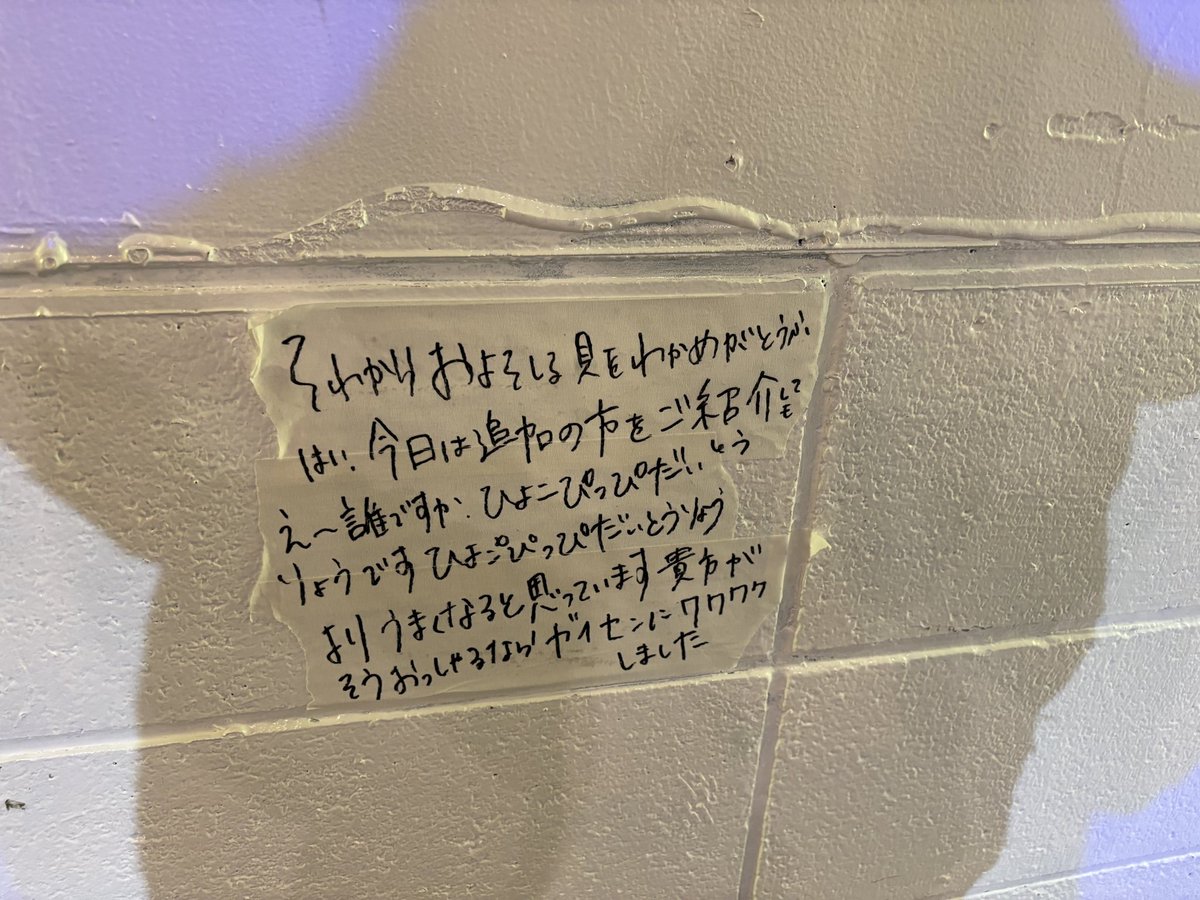 それからおよそしる具をわかめがとうふ
はい、今日は追加の方をご紹介しても
え〜誰ですか、ひよこぴっぴだいとう
りょうですひよこぴっぴだいとうりょう
よりうまくなると思っています貴方が
そうおっしゃるならガイセンにワクワク
しました